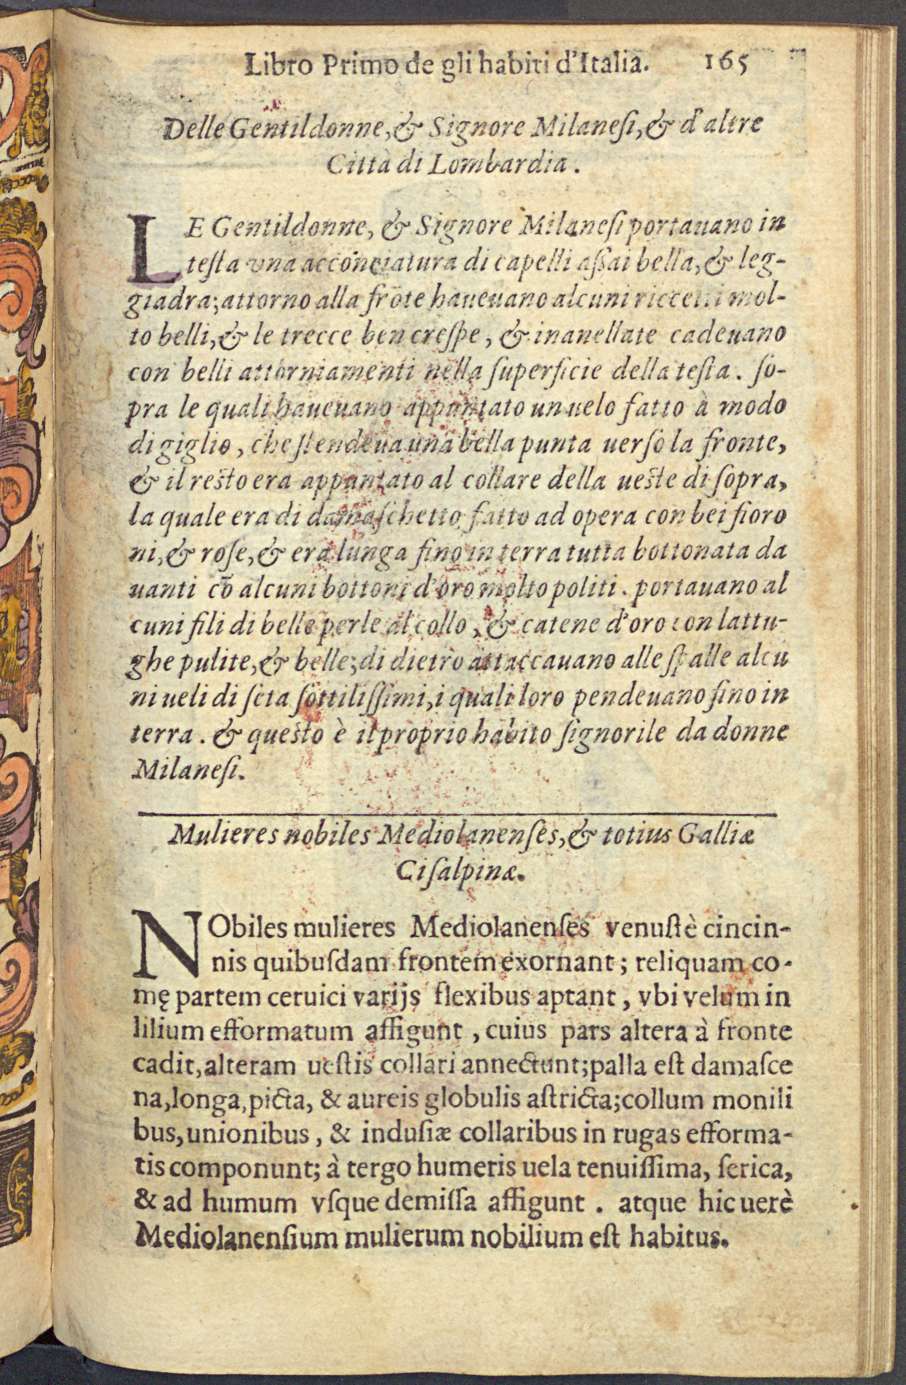 Libro Primo de gli habiti d'Italia. 165
Delle Gentildonne, & Signore Milanesi, & d'altre
Città di Lombardia.
LE Gentildonne, & Signore Milanesi portauano in
testa vna acconciatura di capelli assai bella, & leg-
giadra; attorno alla frōte haueuano alcuni riccetti mol-
to belli, & le trecce ben crespe, & inanellate cadeuano
con belli attorniamenti nella superficie della testa. so-
pra le quali haueuano appuntato un uelo fatto à modo
di giglio, che stendeua una bella punta uerso la fronte,
& il resto era appuntato al collare della ueste di sopra,
la quale era di damaschetto fatto ad opera con bei fioro
ni, & rose, & era lunga fino in terra tutta bottonata da
uanti cō alcuni bottoni d'oro molto politi. portauano al
cuni fili di belle perle al collo, & catene d'oro con lattu-
ghe pulite, & belle; di dietro attaccauano alle spalle alcu
ni ueli di seta sottilissimi, i quali loro pendeuano fino in
terra. & questo è il proprio habito signorile da donne
Milanesi.
Mulieres nobiles Mediolanenses, & totius Galliæ
Cisalpinæ.
NObiles mulieres Mediolanenses venustè cincin-
nis quibusdam frontem exornant; reliquam co-
mę partem ceruici varijs flexibus aptant, vbi velum in
lilium efformatum affigunt, cuius pars altera à fronte
cadit, alteram uestis collari annectunt; palla est damasce
na, longa, picta, & aureis globulis astricta; collum monili
bus, unionibus, & indusiæ collaribus in rugas efforma-
tis componunt; à tergo humeris uela tenuissima, serica,
& ad humum vsque demissa affigunt. atque hic uerè
Mediolanensium mulierum nobilium est habitus.